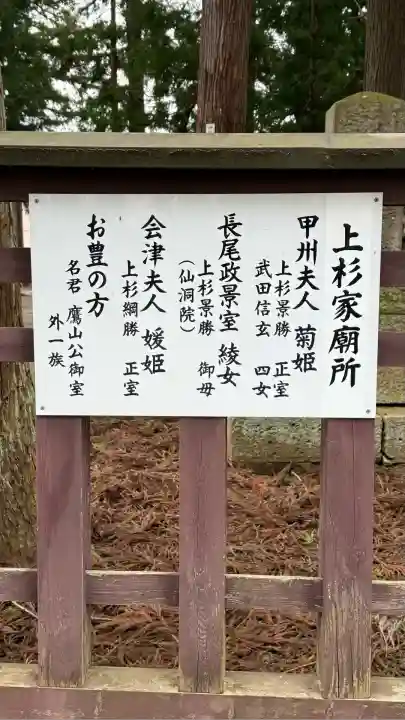 上杉家廟所
甲州夫人 菊姫
上杉景勝 正室
武田信玄 四女
長尾政景室 綾女
上杉景勝 御母
(仙洞院)
会津夫人 媛姫
上杉綱勝 正室
お豊の方
名君 鷹山公御室
外一族